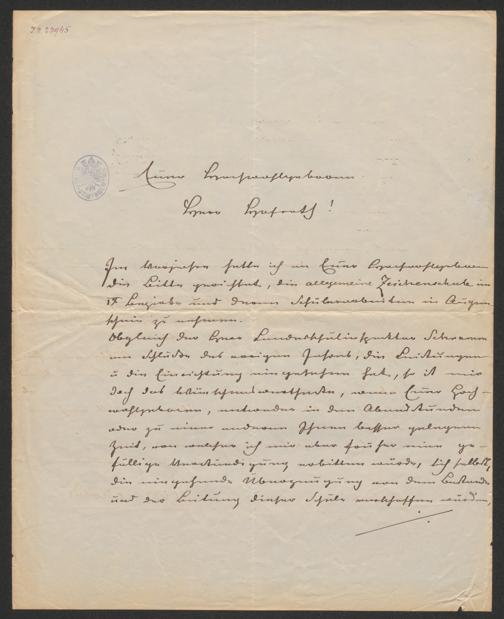 Euer Hochwohlgeboren
Herr Hofrath!
Im Vorjahre hatte ich an Euer Hochwohlgeboren
die Bitte gerichtet, die allgemeine Zeichenschule im
Bezirke und deren Schülerarbeiten in Augen-
schein zu nehmen.
Obgleich der Herr Landesschulinspektor
am Schluße des vorigen Jahres, die Leistungen
u die Einrichtung eingesehen hat, so ist mir
doch das Wünschenswertheste, wenn Euer Hoch-
wohlgeboren, entweder in den Abendstunden
oder zu einer anderen Ihnen besser gelegenen
Zeit, von welcher ich mir aber früher eine ge-
fällige Verständigung erbitten würde, sich selbst,
die eingehende Überzeugung von dem Bestande
und der Leitung dieser Schule verschaffen würden,